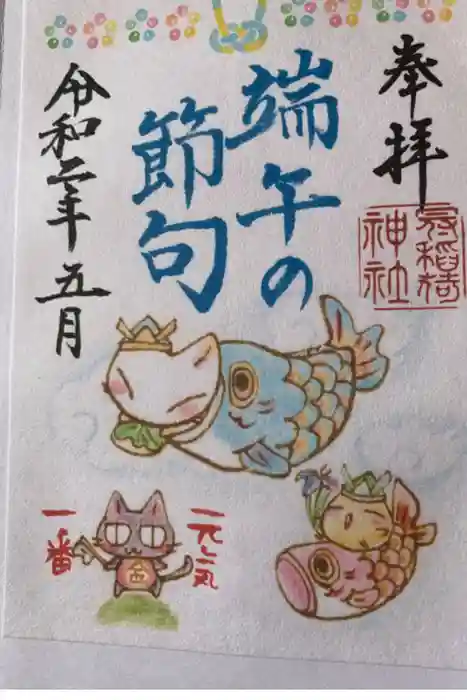 奉拝
稲荷
神社
端午の
節句
令和二年五月
一番
元気
金